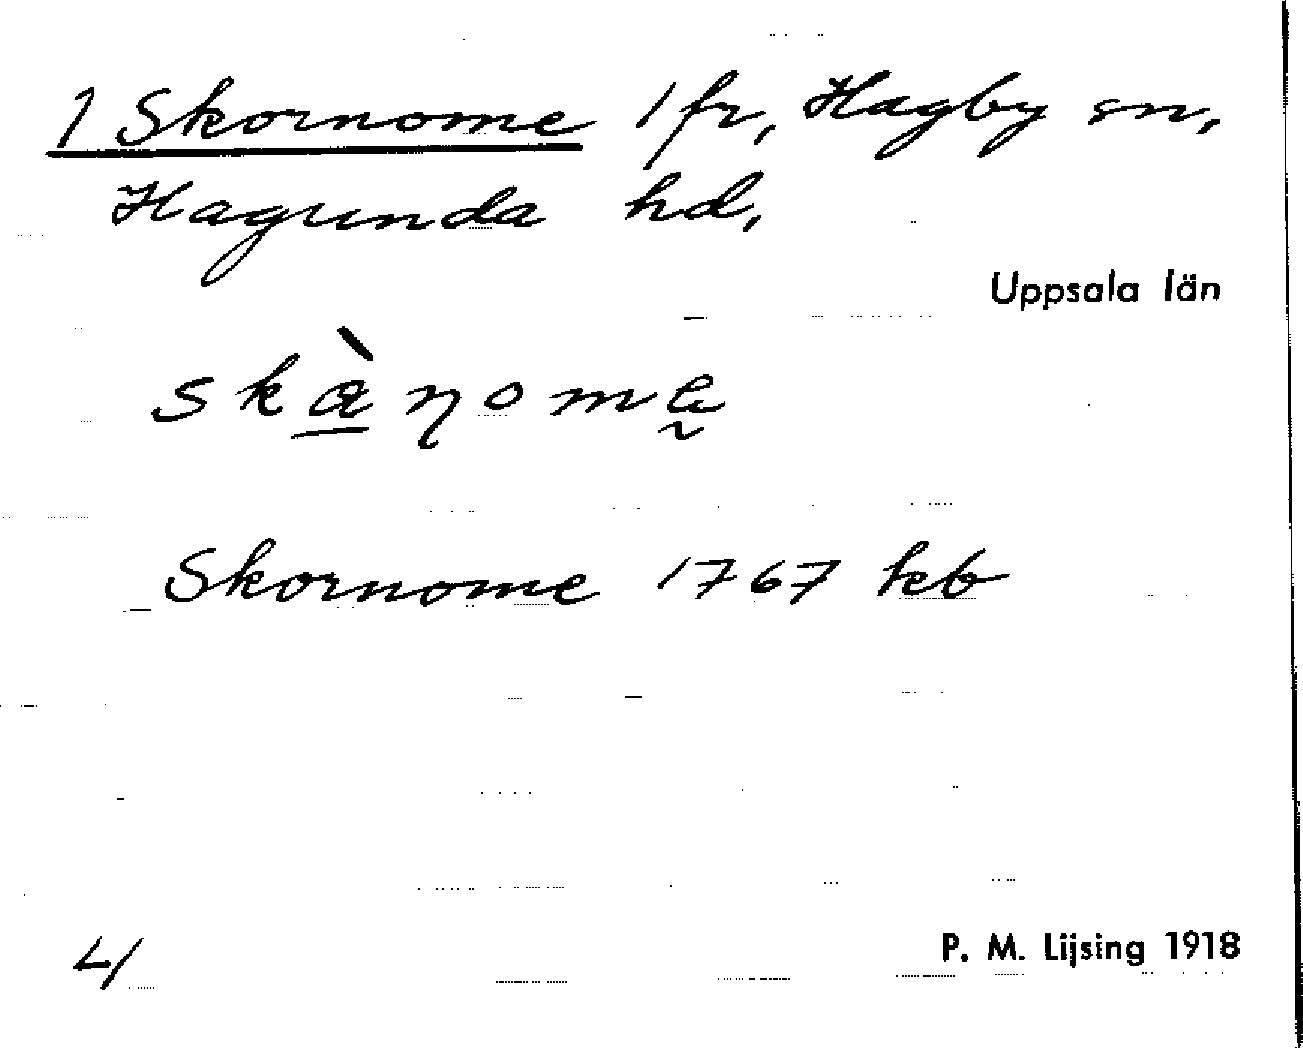 1 Skornome 1 fr, Hagby sn,
Hagunda hd,
Uppsala län
skàɳome
Skornome 1767 kb
4/
P. M. Lijsing 1918